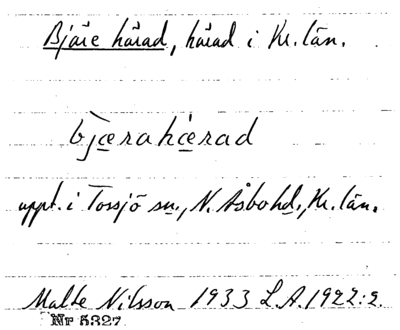 Bjäre härad, härad i Kr. län.
bjærahærad
uppt. i Tossjö sn., N. Åsbohd., Kr. län.
Malte Nilsson 1933 L.A. 1922:2.
Nr 5327